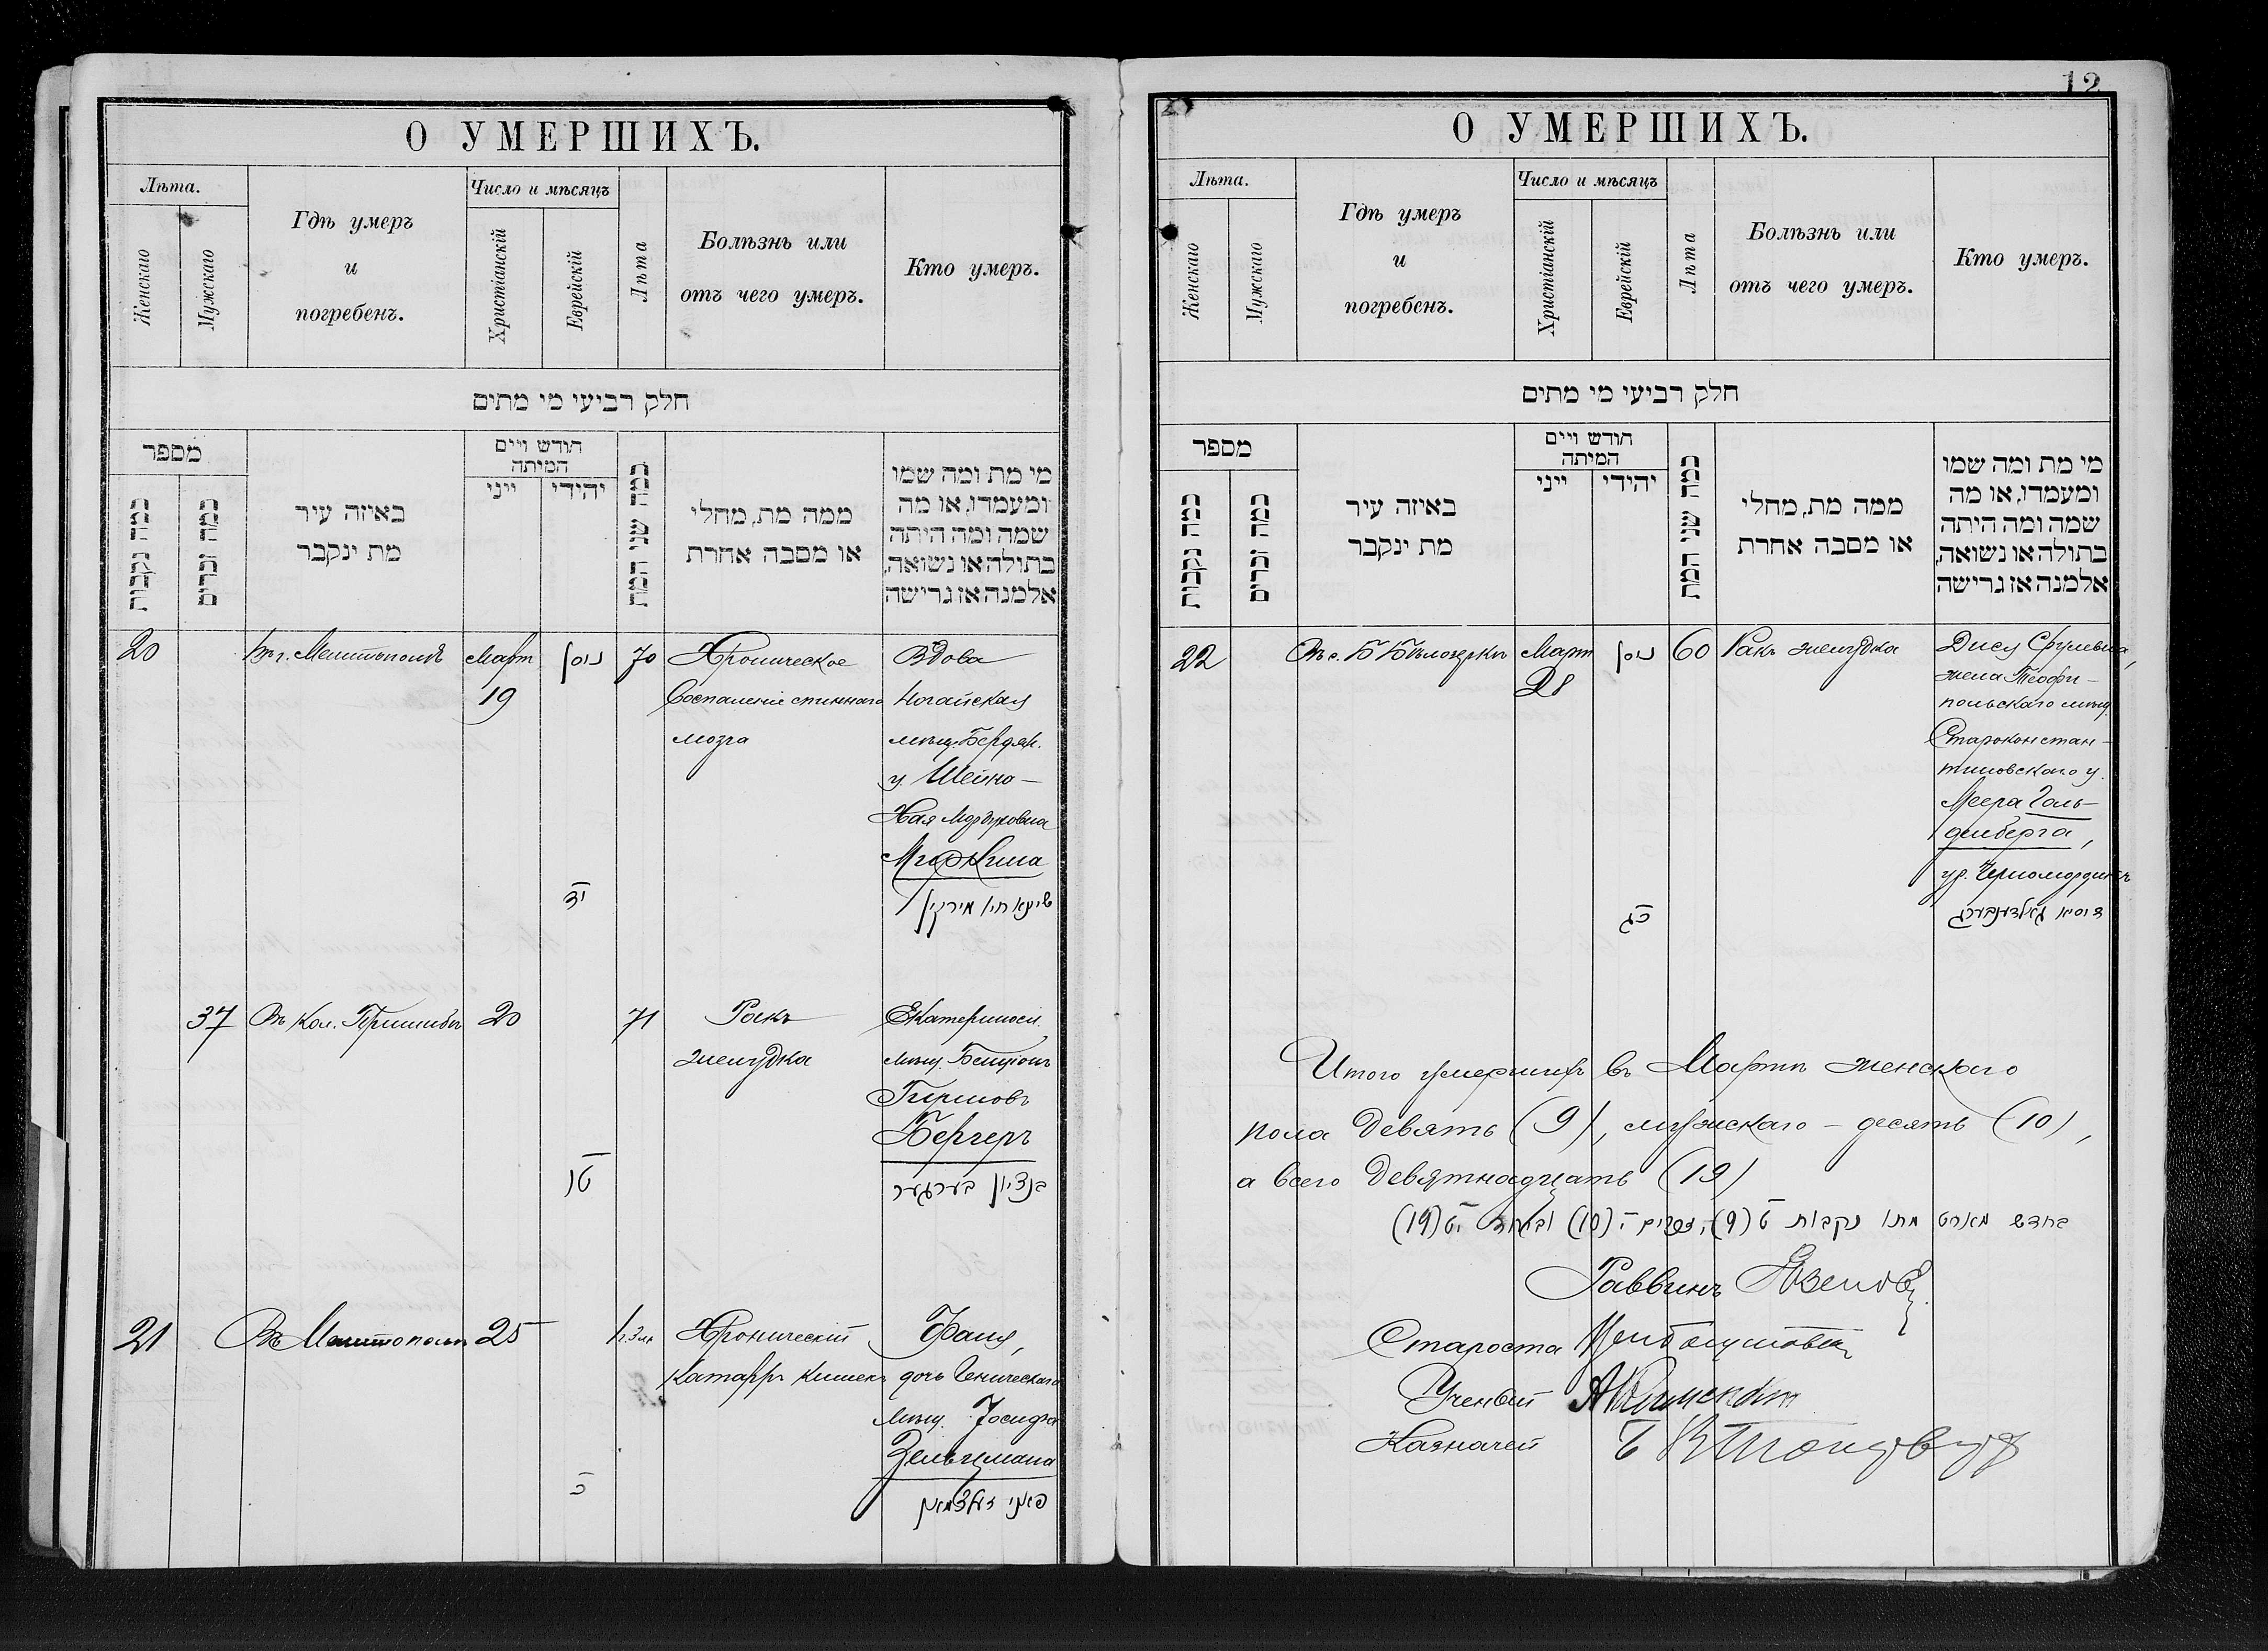 О УМЕРШИХЪ.
Лѣта.
Женскаго
Мужскаго
Гдѣ умеръ
и
погребенъ.
Число и мѣсяцъ
Христіанскій
Еврейскій
Лѣта
Болѣзнь или
отъ чего умеръ.
Кто умеръ.
חלק רביעי מי מתים
מספר
כמה נקבות
כמה זכרים
באיזה עיר
מת ינקבר
חודש ויים
המיתה
ייני
יהידי
כמה שני המת
ממה מת, מחלי
או מסבה אחרת
מי מת ומה שמו
ומעמדו, או מה
שמה ומה היתה
בתולה או נשואה,
אלמנה או גרישה
20
Въ г. Мелитополѣ
Март
19
ניסן
יד
70
Хроническое
Воспаленіе спиннаго
мозга
Вдова
Ногайская
мѣщ. Бердян.
у. Шейно-
Хая Мордуховна
Миркина
שיינא חיה מירקין
37
Въ кол. Пришибъ
20
טו
71
Ракъ
желудка
Екатериносл.
мѣщ. Бенціонъ
Гиршовъ
Бергеръ
בנציון בערגער
21
Въ Мелитополѣ
25
כ
Хроническій
Катарръ кишекъ
Фаня,
дочь Геническаго
мѣщ. Іосифа
Зельцмана
פאני זעלצמאן
12
О УМЕРШИХЪ.
Лѣта.
Женскаго
Мужскаго
Гдѣ умеръ
и
погребенъ.
Число и мѣсяцъ
Христіанскій
Еврейскій
Лѣта
Болѣзнь или
отъ чего умеръ.
Кто умеръ.
חלק רביעי מי מתים
מספר
כמה נקבות
כמה זכרים
באיזה עיר
מת ינקבר
חודש ויים
המיתה
ייני
יהידי
כמה שני המת
ממה מת, מחלי
או מסבה אחרת
מי מת ומה שמו
ומעמדו, או מה
שמה ומה היתה
בתולה או נשואה,
אלמנה או גרישה
22
Въ с. Б Бѣлозеркѣ
Март
28
ניסן
כג
60
Ракъ желудка
Дися Срулевна,
жена Теофи-
польскаго мѣщ.
Староконстан-
тиновскаго у.
Меера Голь-
денберга,
ур. Черномордикъ
דיסיא גאלדענבערג
Итого умершихъ въ Мартѣ женскаго
пола девять (9), мужскаго - десять (10),
а всего девятнадцать (19)
בחדש מארט מתו נקבות ט (9), זכרים י (10) וביחד יט (19)
Раввинъ
Староста
Ученый
Казначей